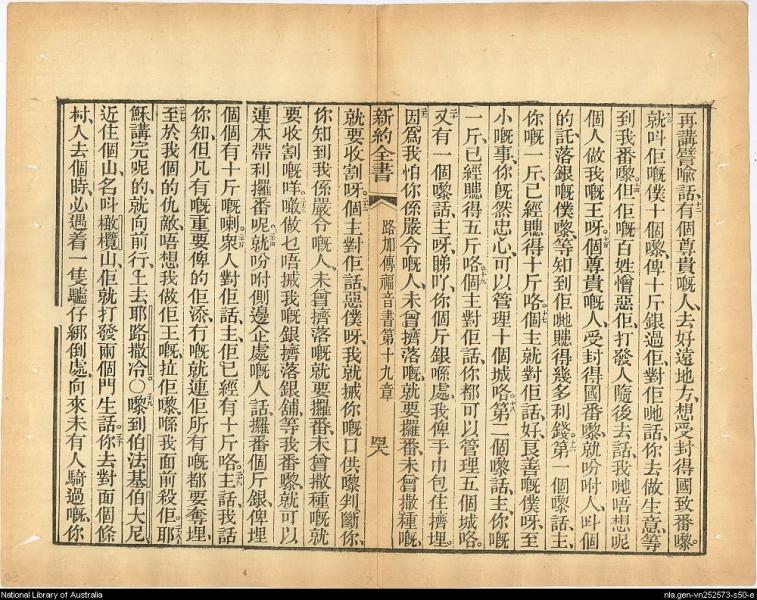 再講譬喻話、十二有個尊貴嘅人、去好遠地方、想受封得國致番嚟。
十三就呌佢嘅僕十個嚟、俾十斤銀過佢、對佢哋話、你去做生意、等
到我番嚟。十四但佢嘅百姓憎惡佢、打發人隨後去話、我哋唔想呢
個人做我嘅王呀。十五個尊貴嘅人、受封得國番嚟、就吩咐人呌個
的託落銀嘅僕嚟、等知到佢哋賺得幾多利錢。十六第一個嚟話、主、
你嘅一斤、已經賺得十斤咯。十七個主就對佢話、好、良善嘅僕呀、至
小嘅事、你旣然忠心、可以管理十個城咯。十八第二個嚟話、主、你嘅
一斤、已經賺得五斤咯。十九個主對佢話、你都可以管理五個城咯。
二十又有一個嚟話、主呀、睇吖、你個斤銀喺處、我俾手巾包住擠埋。
二一因爲我怕你係嚴令嘅人、未曾擠落嘅、就要攞番、未曾撒種嘅、
新約全書 路加傳福音書第十九章
就要收割呀。二二個主對佢話、惡僕呀、我就㨢你嘅口供嚟判斷你、
你知到我係嚴令嘅人、未曾擠落嘅就要攞番、未曾撒種嘅就
要收割嘅咩。二三噉做乜唔㨢我嘅銀擠落銀鋪、等我番嚟、就可以
連本帶利攞番呢。二四就吩咐側邊企處嘅人話、攞番個斤銀、俾埋
個個有十斤嘅喇。二五衆人對佢話、主、佢已經有十斤咯。二六主話、我話
你知、但凡有嘅、重要俾的佢添、冇嘅、就連佢所有嘅都要奪埋。
二七至於我個的仇敵、唔想我做佢王嘅、拉佢嚟喺我面前殺佢。二八耶
穌講完呢的、就向前行、上去耶路撒冷。〇二九嚟到伯法基伯大尼
近住個山、名呌橄欖山、佢就打發兩個門生話、三十你去對面個條
村、入去個時、必遇着一隻驢仔綁倒處、向來未有人騎過嘅、你
National Library of Australia
nla.gen-vn252573-s50-e